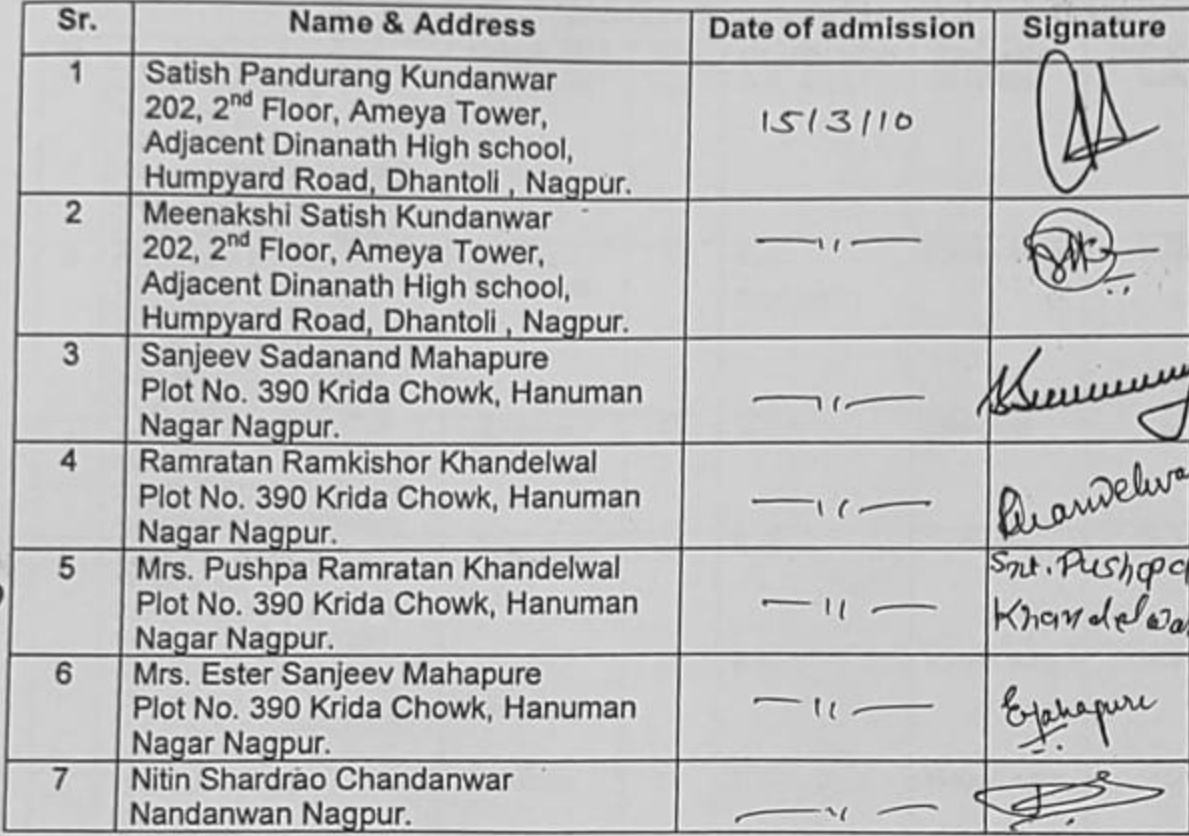 Sr. Name & Address Date of admission Signature
1 Satish Pandurang Kundanwar
202, 2nd Floor, Ameya Tower,
15/3/10
Adjacent Dinanath High school,
Humpyard Road, Dhantoli , Nagpur.
2 Meenakshi Satish Kundanwar
202, 2nd Floor, Ameya Tower,
—〃—
Adjacent Dinanath High school,
Humpyard Road, Dhantoli , Nagpur.
3 Sanjeev Sadanand Mahapure
Plot No. 390 Krida Chowk, Hanuman
—〃—
Nagar Nagpur.
4 Ramratan Ramkishor Khandelwal
Plot No. 390 Krida Chowk, Hanuman
—〃—
Nagar Nagpur.
5 Mrs. Pushpa Ramratan Khandelwal
Plot No. 390 Krida Chowk, Hanuman
—〃—
Nagar Nagpur.
Smt. Pushpa
Khandelwal
6 Mrs. Ester Sanjeev Mahapure
Plot No. 390 Krida Chowk, Hanuman
—〃—
Nagar Nagpur.
7 Nitin Shardrao Chandanwar
Nandanwan Nagpur.
—〃—